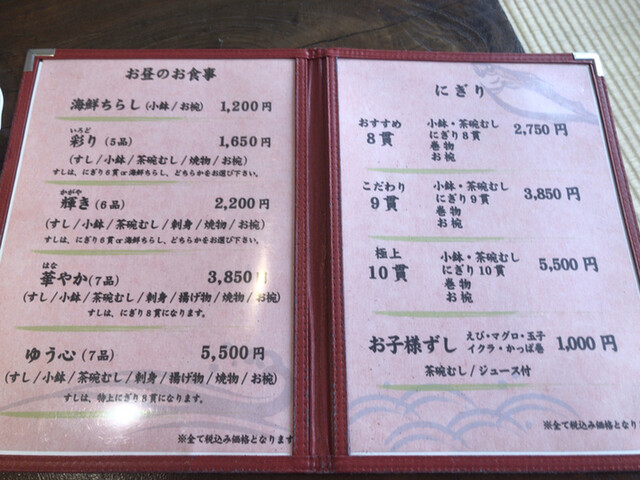 お昼のお食事
海鮮ちらし(小鉢/お椀) 1,200円
いろど
彩り(5品) 1,650円
(すし/小鉢/茶碗むし/焼物/お椀)
すしは、にぎり6貫or海鮮ちらし、どちらかをお選び下さい。
かがや
輝き(6品) 2,200円
(すし/小鉢/茶碗むし/刺身/焼物/お椀)
すしは、にぎり6貫or海鮮ちらし、どちらかをお選び下さい。
はな
華やか(7品) 3,850円
(すし/小鉢/茶碗むし/刺身/揚げ物/焼物/お椀)
すしは、にぎり8貫になります。
ゆう心(7品) 5,500円
(すし/小鉢/茶碗むし/刺身/揚げ物/焼物/お椀)
すしは、特上にぎり8貫になります。
※全て税込み価格となります
にぎり
おすすめ
8貫
小鉢・茶碗むし
にぎり8貫
巻物
お椀
2,750円
こだわり
9貫
小鉢・茶碗むし
にぎり9貫
巻物
お椀
3,850円
極上
10貫
小鉢・茶碗むし
にぎり10貫
巻物
お椀
5,500円
お子様ずし
えび・マグロ・玉子
イクラ・かっぱ巻
1,000円
茶碗むし/ジュース付
※全て税込み価格となります